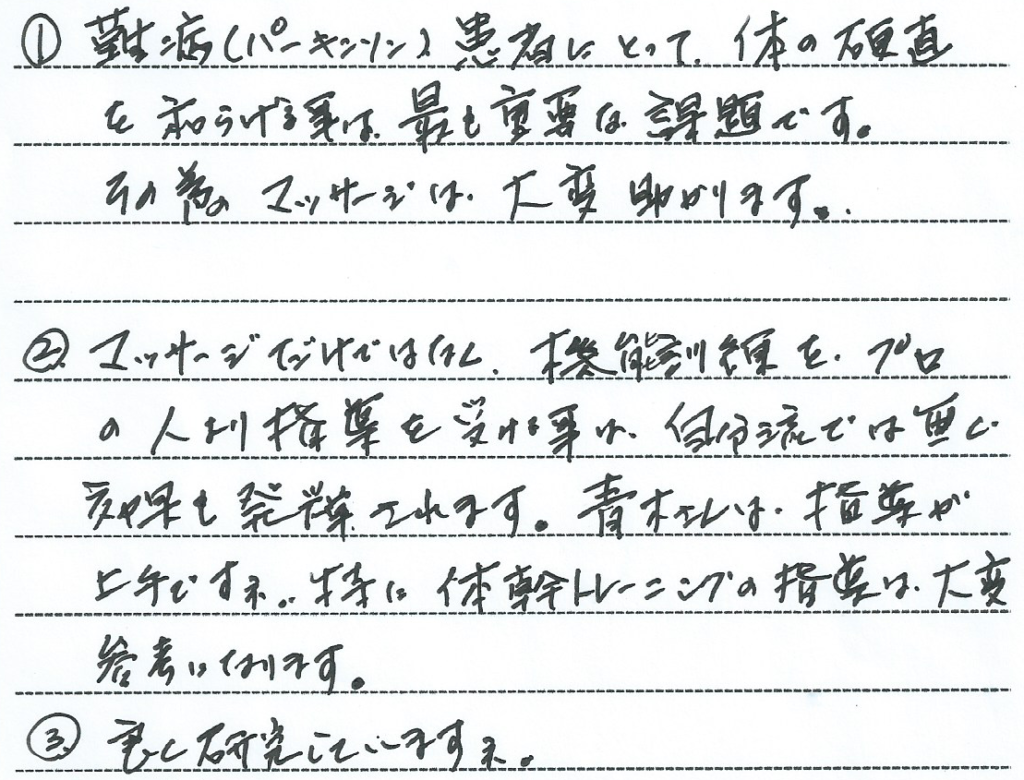 ① 難病(パーキンソン)患者にとって、体の硬直
を和らげる事は、最も重要な課題です。
その為のマッサージは、大変助かります。
② マッサージだけではなく、機能訓練を、プロ
の人より指導を受ける事は、自分流では無く
効果も発揮されます。青木さんは、指導が
上手ですネ。特に体幹トレーニングの指導は、大変
参考になります。
③ 良く研究していますネ。